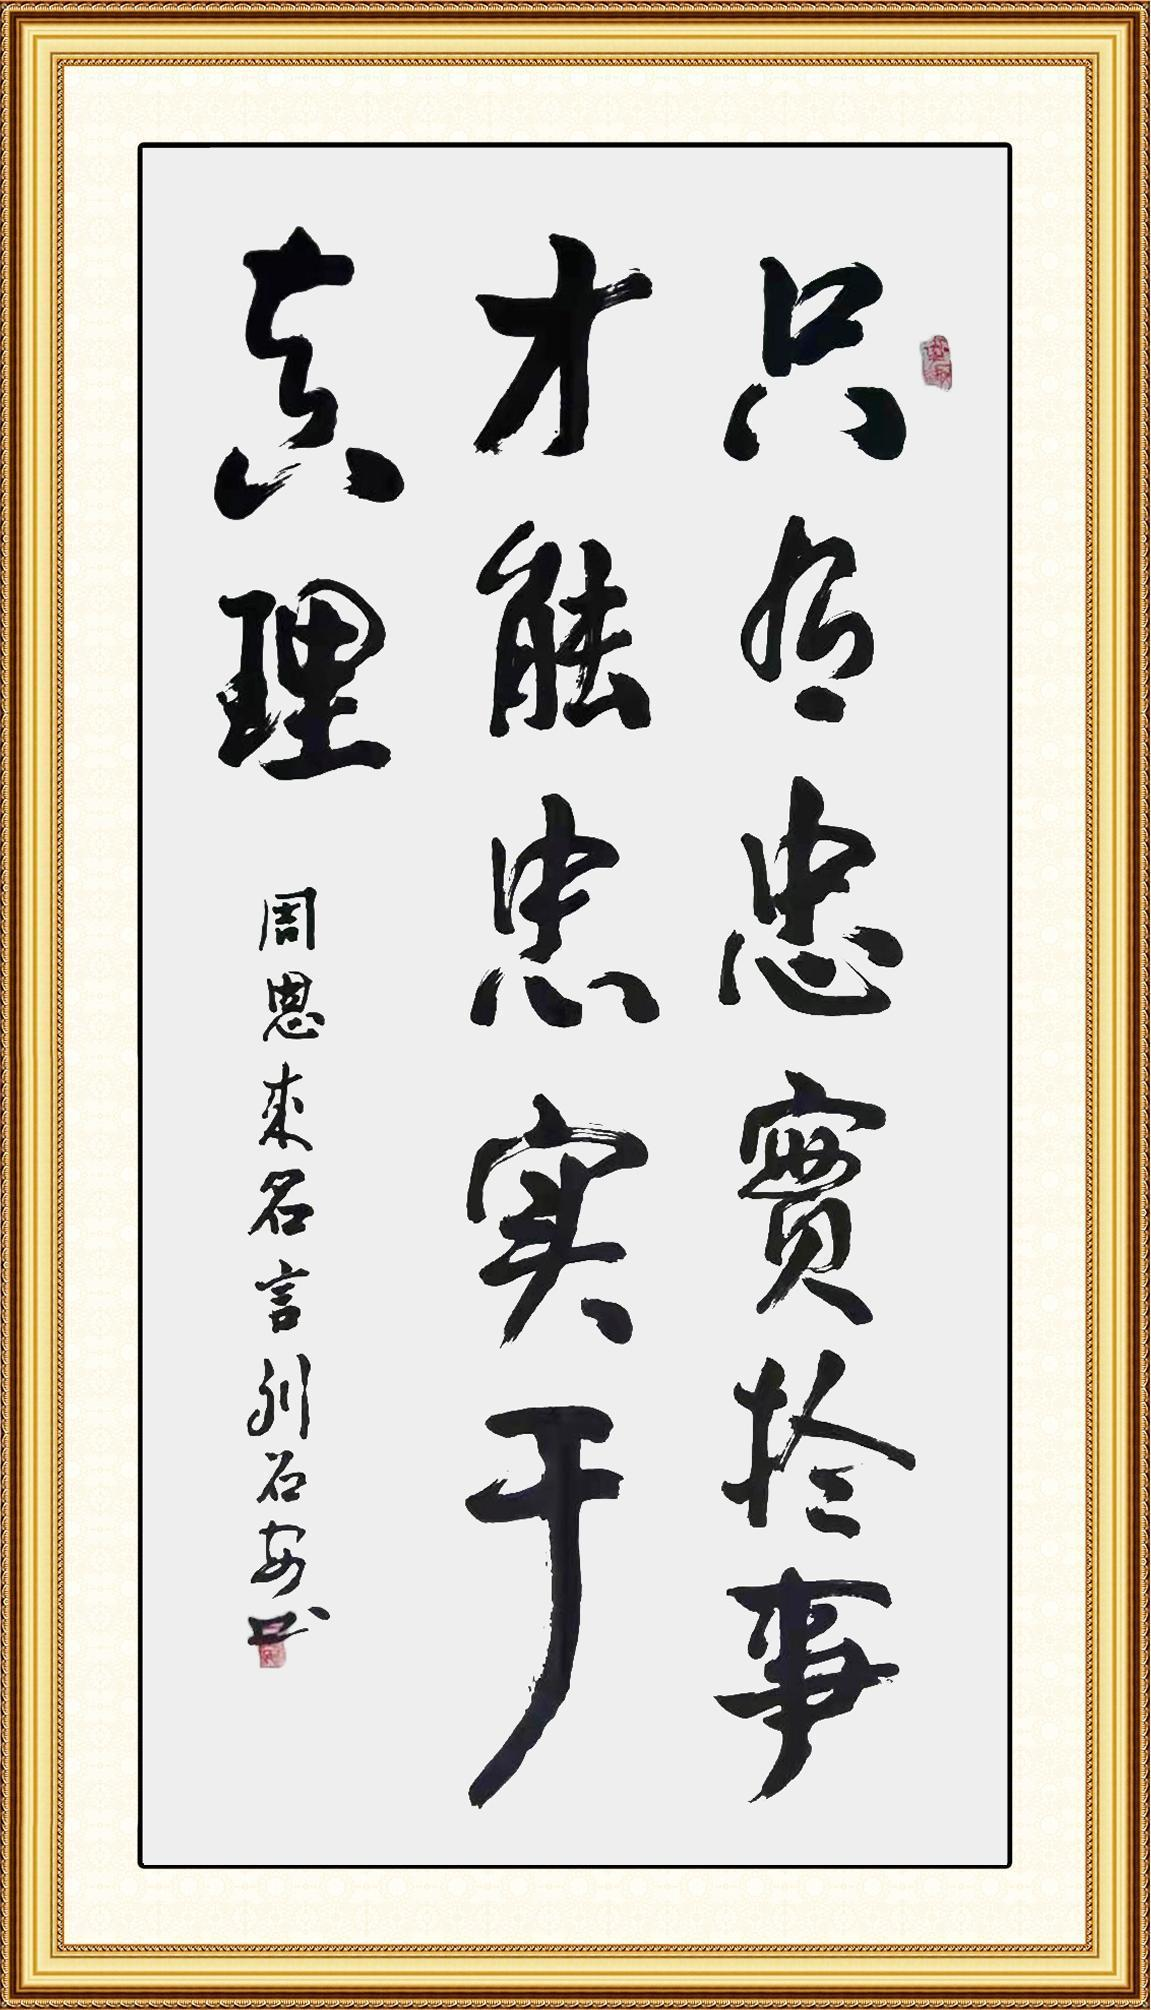 只有忠實於事
才能忠实于
真理
周恩來名言刘石安书